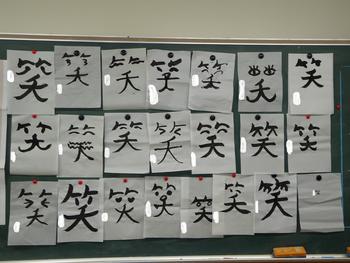 笑 笑 笑 笑 笑 笑 笑
笑 笑 笑 笑 笑 笑 笑
笑 笑 笑 笑 笑 笑 笑